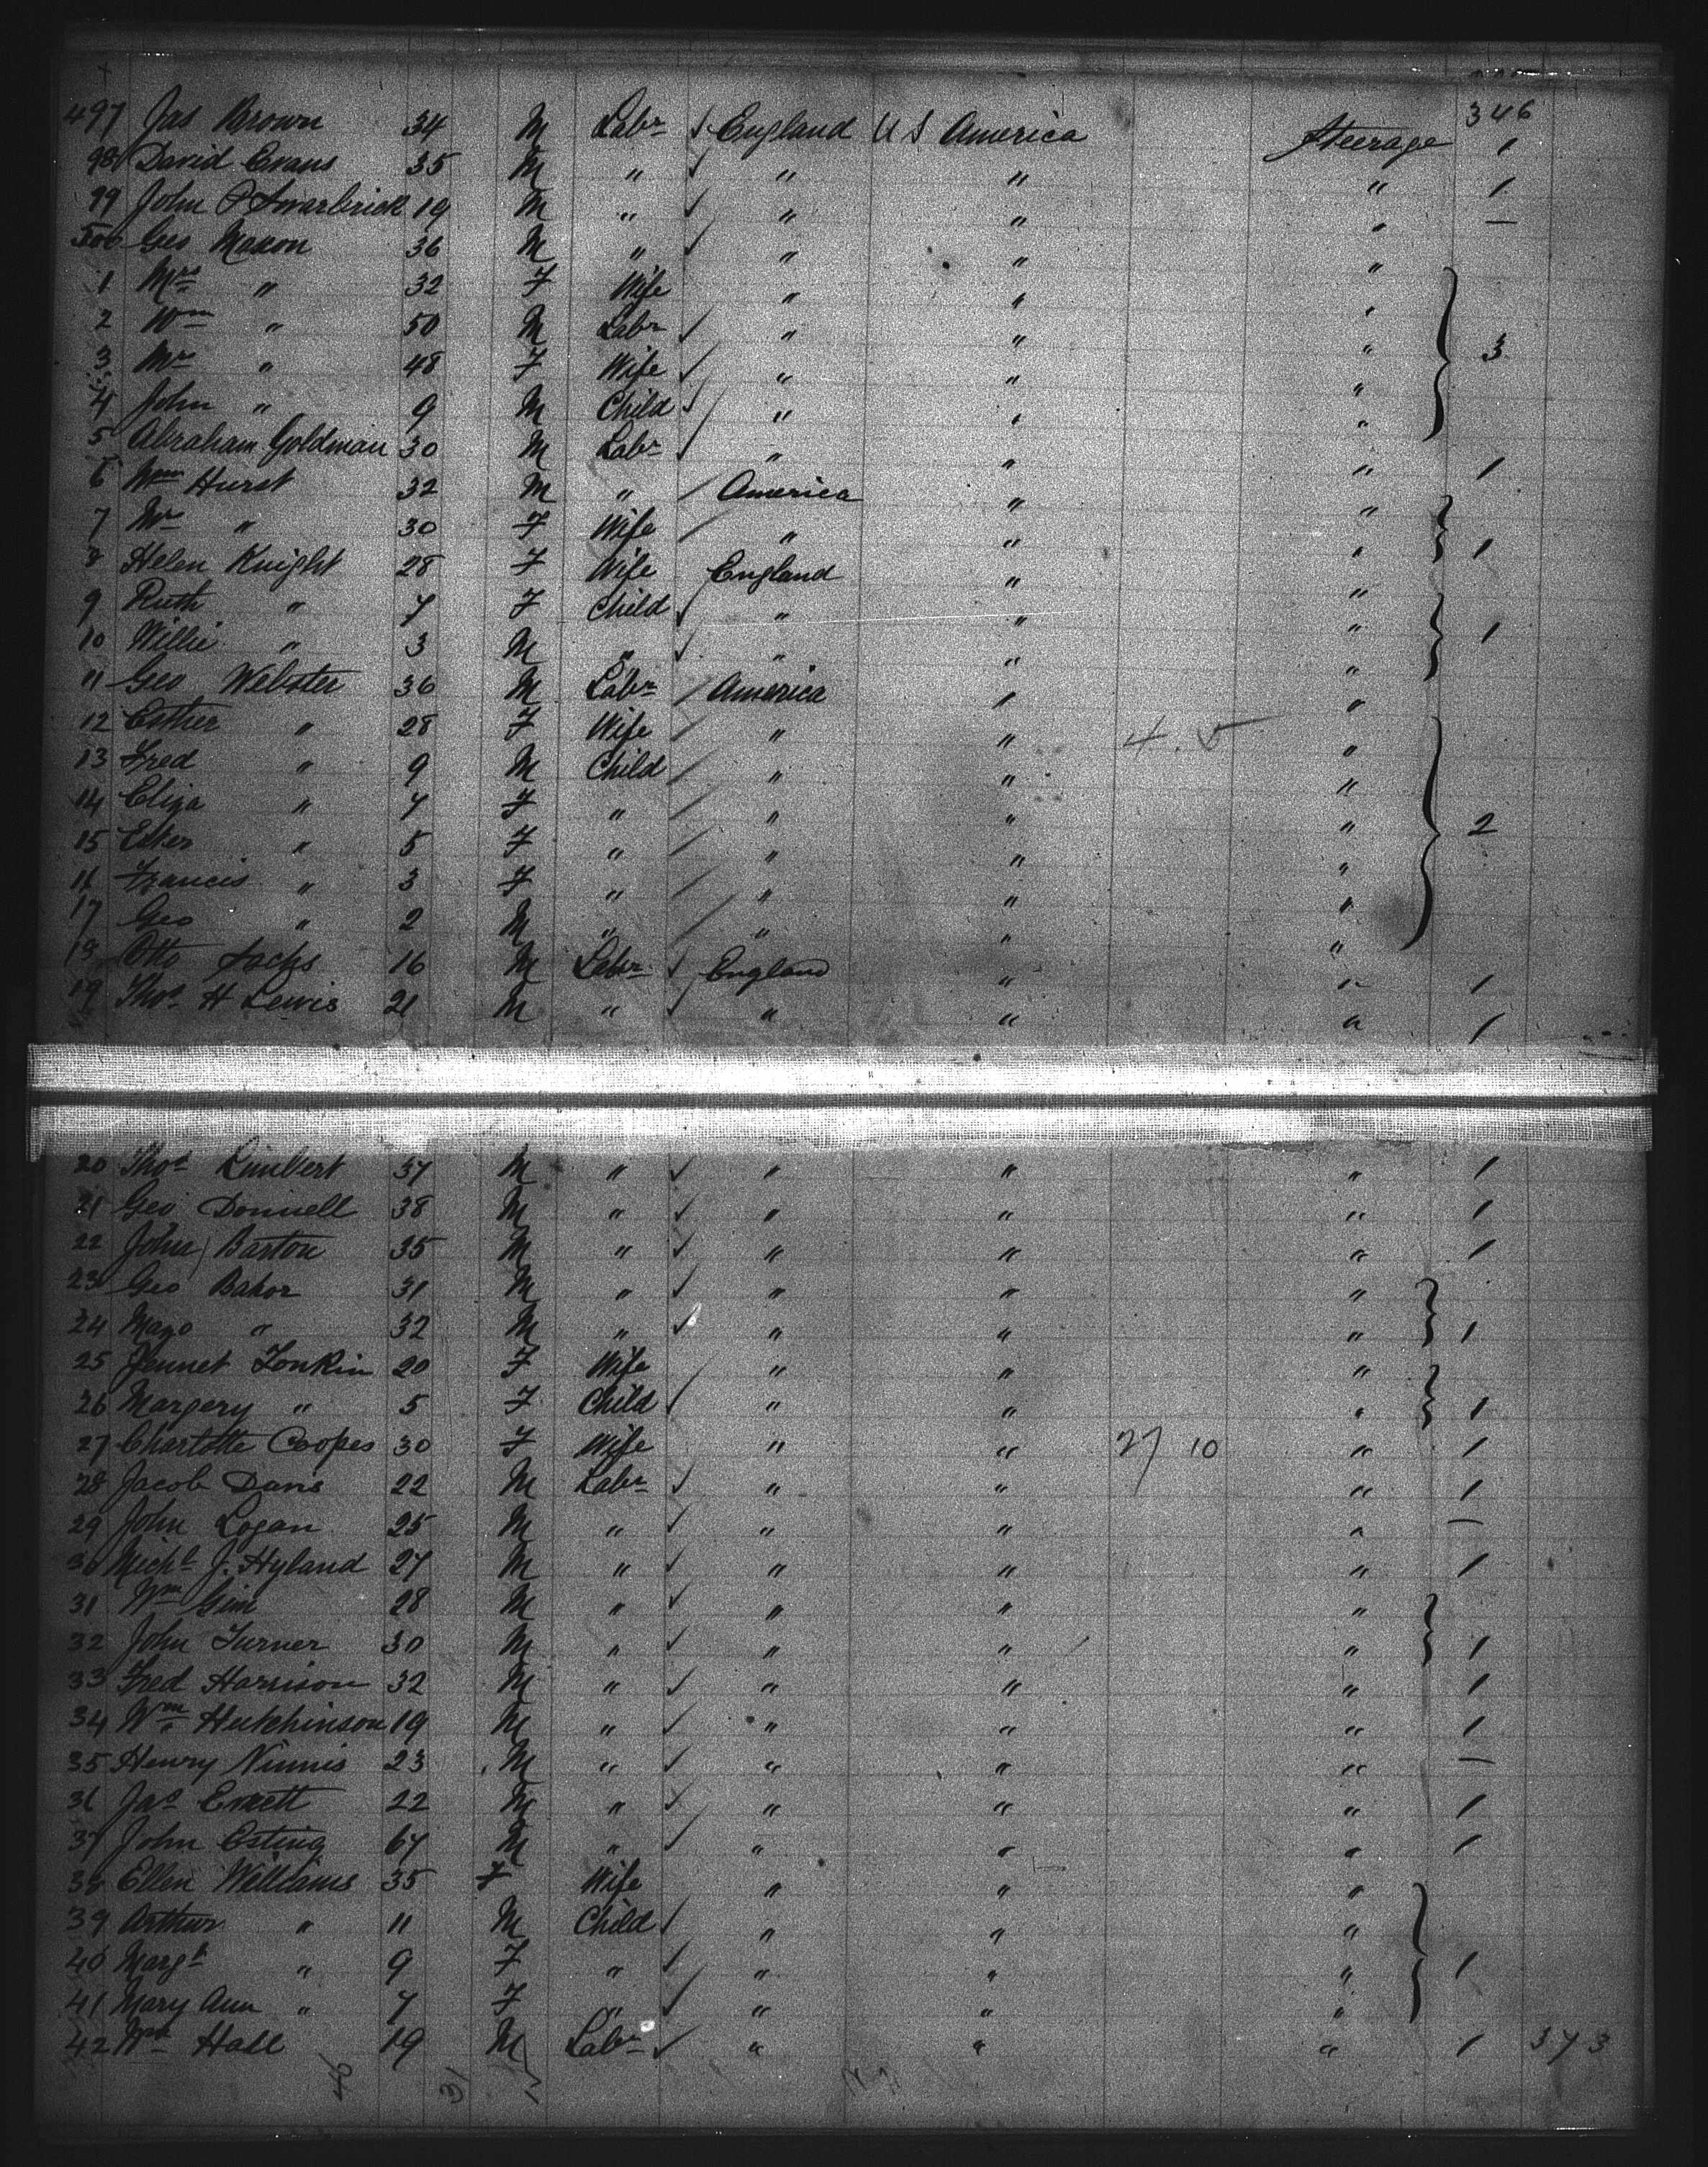 346
497 Jas Brown 34 M Labr ✓ England U S America Steerage 1
98 David Evans 35 M " ✓ " " " 1
99 John P Swarbrick 19 M " ✓ " " " —
500 Geo Maxon 36 M " ✓ " " "
1 Mrs " 32 F Wife " " "
2 Wm " 50 M Labr ✓ " " " 3
3 Mrs " 48 F Wife ✓ " " "
4 John " 9 M Child ✓ " " "
5 Abraham Goldman 30 M Labr ✓ " " " 1
6 Wm Hurst 32 M " / America " "
7 Mrs " 30 F Wife / " " " 1
8 Helen Knight 28 F Wife England " "
9 Ruth " 7 F Child ✓ " " " 1
10 Willie " 3 M " ✓ " " "
11 Geo Webster 36 M Labr / America " "
12 Esther " 28 F Wife / " " 4.5 "
13 Fred " 9 M Child / " " "
14 Eliza " 7 F " / " " " 2
15 Ester " 5 F " / " " "
16 Francis " 3 F " / " " "
17 Geo " 2 M " / " " "
18 Otto Sachs 16 M Labr ✓ England " " 1
19 Thos H Lewis 21 M " ✓ " " " 1
20 Thos Limbert 37 M " ✓ " " " 1
21 Geo Donnell 38 M " ✓ " " " 1
22 John Barton 35 M " ✓ " " " 1
23 Geo Bakor 31 M " ✓ " " "
24 Mayo " 32 M " ✓ " " " 1
25 Jennet Tonkin 20 F Wife " " "
26 Margery " 5 F Child ✓ " " " 1
27 Charlotte Coopes 30 F Wife " " 27 10 " 1
28 Jacob Davis 22 M Labr ✓ " " " 1
29 John Logan 25 M " ✓ " " " —
30 Michl J. Hyland 27 M " ✓ " " " 1
31 Wm Gim 28 M " ✓ " " "
32 John Turner 30 M " ✓ " " " 1
33 Fred Harrison 32 M " ✓ " " " 1
34 Wm Hutchinson 19 M " ✓ " " " 1
35 Henry Ninnis 23 M " ✓ " " " —
36 Jas Emett 22 M " ✓ " " " 1
37 John Esting 67 M " ✓ " " " 1
38 Ellen Williams 35 F Wife " " "
39 Arthur " 11 M Child ✓ " " "
40 Margt " 9 F " ✓ " " " 1
41 Mary Ann " 7 F " ✓ " " "
42 Wm Hall 19 M Labr ✓ " " " 1 373
31